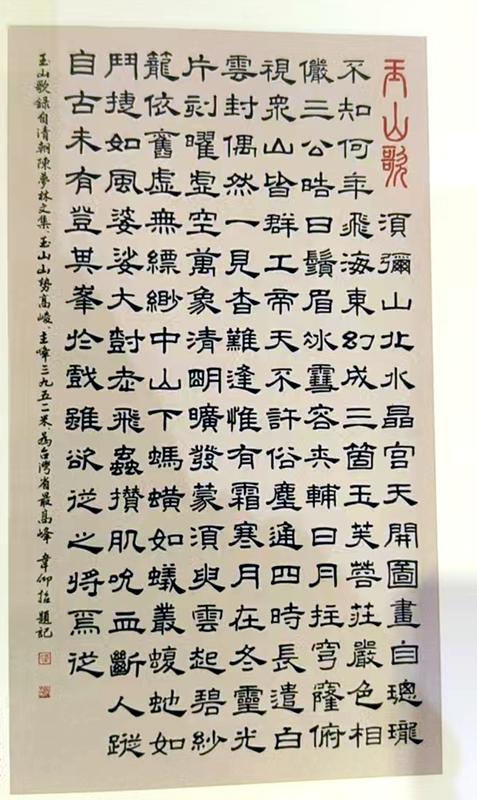 玉山歌
須彌山北水晶宮天開圖畫自璁瓏
不知何年飛海東幻成三箇玉芙蓉莊嚴色相
儼三公皓白鬢眉冰雪容夾輔日月拄穹窿俯
視眾山皆群工帝天不許俗塵通四時長遣白
雲封偶然一見杳難逢惟有霜寒月在冬靈光
片刻曜虛空萬象清明曠發蒙須臾雲起碧紗
籠依舊虛無縹緲中山下螞蟥如蟻叢蝮虵如
鬥捷如風婆娑大樹老飛蟲攢肌吮血斷人蹤
自古未有登其峯於戲雖欲從之將焉從
玉山歌錄自清朝陳夢林文集、玉山山勢高峻、主峰三九五二米、為台灣省最高峰 韋仰 題記